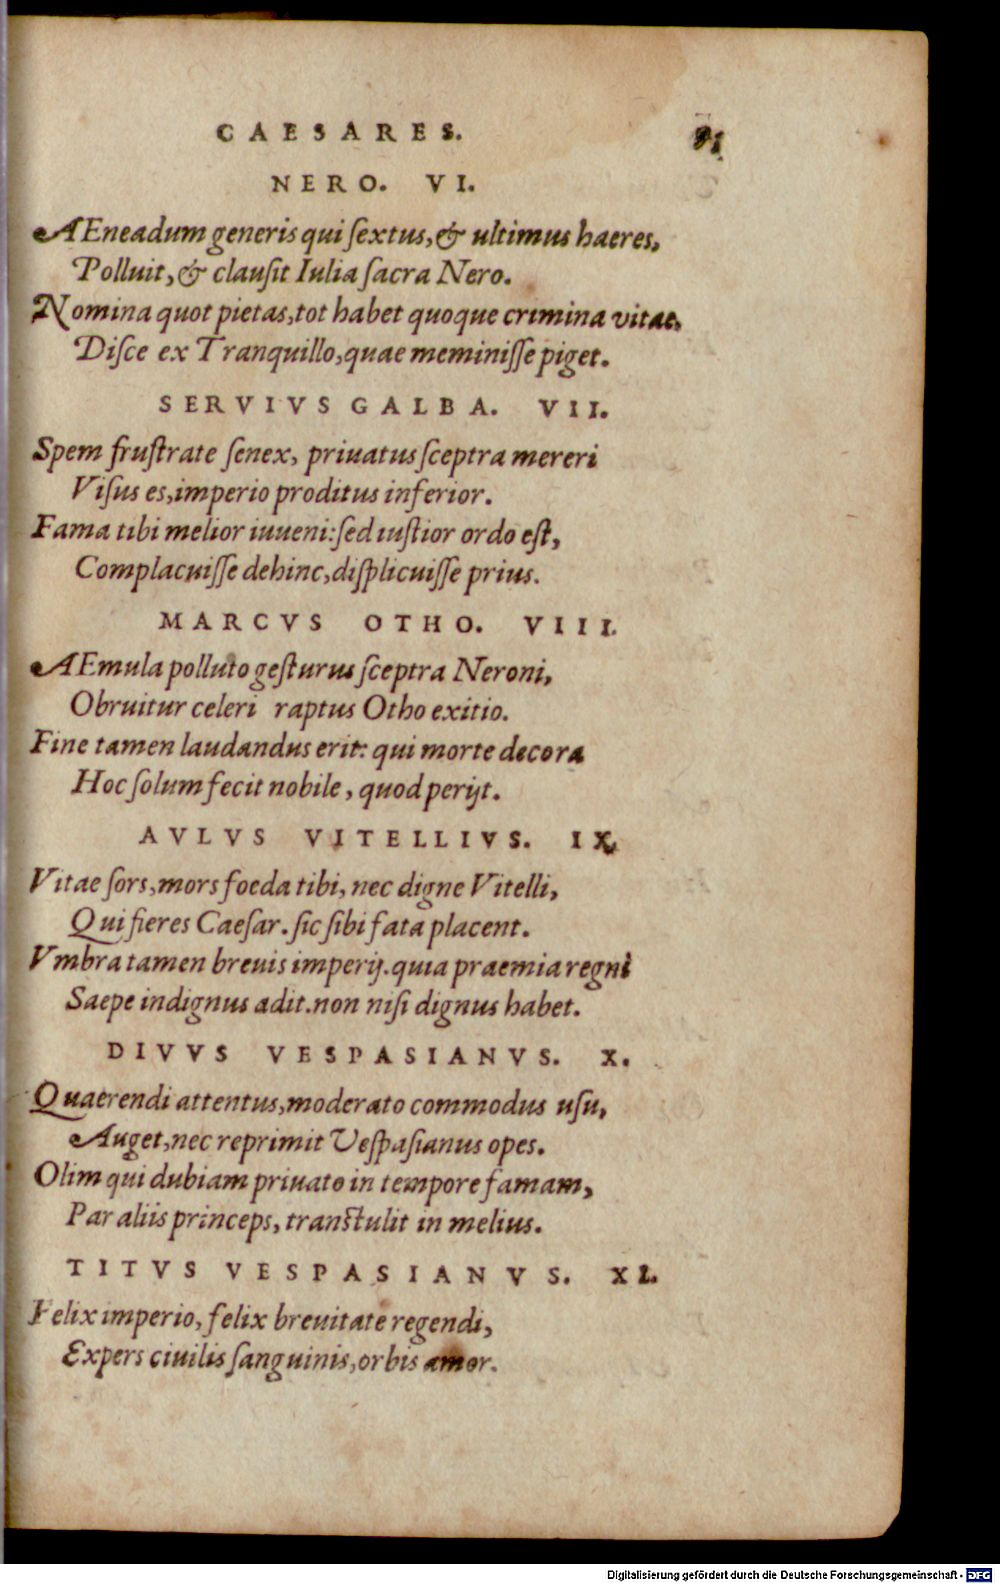 CAESARES. 91
NERO. VI.
AEneadum generis qui ſextus, & ultimus haeres,
Polluit, & clauſit Iulia ſacra Nero.
Nomina quot pietas, tot habet quoque crimina vitae.
Diſce ex Tranquillo, quae meminiſſe piget.
SERVIVS GALBA. VII.
Spem fruſtrate ſenex, priuatus ſceptra mereri
Viſus es, imperio proditus inferior.
Fama tibi melior iuueni: ſed iuſtior ordo eſt,
Complacuiſſe dehinc, diſplicuiſſe prius.
MARCVS OTHO. VIII.
AEmula polluto geſturus ſceptra Neroni,
Obruitur celeri raptus Otho exitio.
Fine tamen laudandus erit: qui morte decora
Hoc ſolum fecit nobile, quod perijt.
AVLVS VITELLIVS. IX.
Vitae ſors, mors foeda tibi, nec digne Vitelli,
Qui fieres Caeſar. ſic ſibi fata placent.
Vmbra tamen breuis imperij. quia praemia regni
Saepe indignus adit. non niſi dignus habet.
DIVVS VESPASIANVS. X.
Quaerendi attentus, moderato commodus uſu,
Auget, nec reprimit Veſpaſianus opes.
Olim qui dubiam priuato in tempore famam,
Par aliis princeps, tranſtulit in melius.
TITVS VESPASIANVS. XI.
Felix imperio, felix breuitate regendi,
Expers ciuilis ſanguinis, orbis amor.
Digitalisierung gefördert durch die Deutsche Forschungsgemeinschaft - DFG